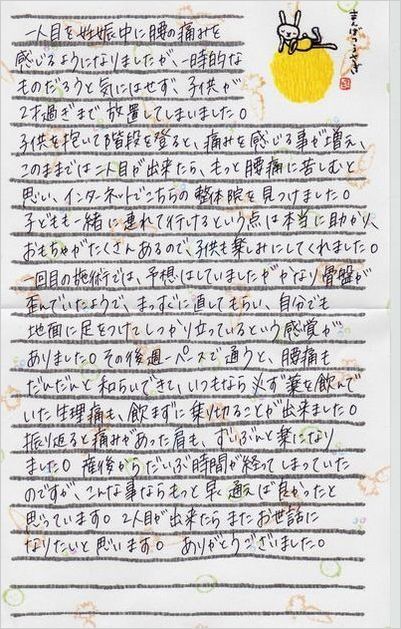 まんぼううさぎ
一人目を妊娠中に腰の痛みを
感じるようになりましたが、一時的な
ものだろうと気にはせず、子供が
2才過ぎまで放置してしまいました。
子供を抱いて階段を登ると、痛みを感じる事が増え、
このままでは二人目が出来たら、もっと腰痛に苦しむと
思い、インターネットでこちらの整体院を見つけました。
子どもも一緒に連れて行けるという点は本当に助かり、
おもちゃがたくさんあるので、子供も楽しみにしてくれました。
一回目の施術では、予想はしていましたがかなり骨盤が
歪んでいたようで、まっすぐに直してもらい、自分でも
地面に足をつけてしっかり立っているという感覚が
ありました。その後週一ペースで通うと、腰痛も
だんだんと和らいできて、いつもなら必ず薬を飲んで
いた生理痛も、飲まずに乗り切ることが出来ました。
振り返ると痛みがあった肩も、ずいぶんと楽になり
ました。産後からだいぶ時間が経ってしまっていた
のですが、こんな事ならもっと早く通えば良かったと
思っています。2人目が出来たらまたお世話に
なりたいと思います。ありがとうございました。